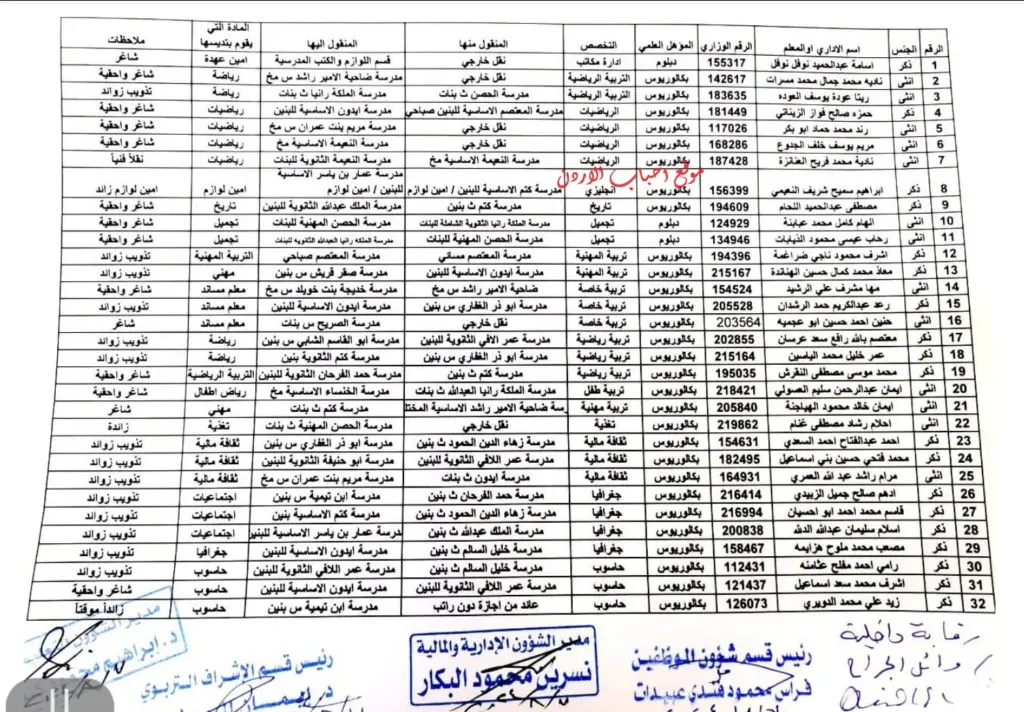 الرقم الجنس اسم الاداري اوالمعلم الرقم الوزاري المؤهل العلمي التخصص المنقول منها المنقول اليها المادة التي يقوم بتديسها ملاحظات
1 ذكر اسامة عبدالحميد نوفل نوفل 155317 دبلوم ادارة مكاتب نقل خارجي قسم اللوازم والكتب المدرسية امين عهدة شاغر
2 انثى ناديه محمد جمال محمد مسرات 142617 بكالوريوس التربية الرياضية نقل خارجي مدرسة ضاحية الامير راشد س مخ رياضة شاغر واحقية
3 انثى ريتا عودة يوسف العوده 183635 بكالوريوس التربية الرياضية مدرسة الحصن ث بنات مدرسة الملكة رانيا ث بنات رياضة تذويب زوائد
4 ذكر حمزه صالح فواز الزيناتي 181449 بكالوريوس الرياضيات مدرسة المعتصم الاساسية للبنين صباحي مدرسة ايدون الاساسية للبنين رياضيات شاغر واحقية
5 انثى رند محمد حماد ابو بكر 117026 بكالوريوس الرياضيات نقل خارجي مدرسة مريم بنت عمران س مخ رياضيات شاغر واحقية
6 انثى مريم يوسف خلف الجدوع 168286 بكالوريوس الرياضيات نقل خارجي مدرسة النعيمة الاساسية مخ رياضيات شاغر واحقية
7 انثى نادية محمد فريح العنانزة 187428 بكالوريوس الرياضيات مدرسة النعيمة الاساسية مخ مدرسة النعيمة الثانوية للبنات رياضيات نقلاً فنياً
موقع احباب الاردن
8 ذكر ابراهيم سميح شريف النعيمي 156399 بكالوريوس انجليزي مدرسة كتم الاساسية للبنين / امين لوازم مدرسة عمار بن ياسر الاساسية للبنين / امين لوازم امين لوازم امين لوازم زائد
9 ذكر مصطفى عبدالحميد اللحام 194609 بكالوريوس تاريخ مدرسة كتم ث بنين مدرسة الملك عبدالله الثانوية للبنين تاريخ شاغر واحقية
10 انثى الهام كامل محمد عبابنة 124929 دبلوم تجميل مدرسة الملكة رانيا الثانوية الشاملة للبنات مدرسة الحصن المهنية للبنات تجميل شاغر واحقية
11 انثى رحاب عيسى محمود الذيابات 134946 دبلوم تجميل مدرسة الحصن المهنية للبنات مدرسة الملكة رانيا العبدالله الثانويه للبنات تجميل شاغر واحقية
12 ذكر اشرف محمود ناجي ضراغمة 194396 بكالوريوس تربية المهنية مدرسة المعتصم مسائي مدرسة المعتصم صباحي التربية المهنية تذويب زوائد
13 ذكر معاذ محمد كمال حسين الهناندة 215167 بكالوريوس تربية المهنية مدرسة ايدون الاساسية للبنين مدرسة صقر قريش س بنين مهني تذويب زوائد
14 انثى مها مشرف علي الرشيد 154524 بكالوريوس تربية خاصة ضاحية الامير راشد س مخ مدرسة خديجة بنت خويلد س مخ معلم مساند شاغر واحقية
15 ذكر رعد عبدالكريم حمد الرشدان 205528 بكالوريوس تربية خاصة مدرسة ابو ذر الغفاري س بنين مدرسة ايدون الاساسية للبنين معلم مساند تذويب زوائد
16 انثى حنين احمد حسين ابو عجميه 203564 بكالوريوس تربية خاصة نقل خارجي مدرسة الصريح س بنات معلم مساند شاغر
17 ذكر معتصم بالله رافع سعد عرسان 202855 بكالوريوس تربية رياضية مدرسة عمر الافي الثانوية للبنين مدرسة ابو القاسم الشابي س بنين رياضة تذويب زوائد
18 ذكر عمر خليل محمد الياسين 215164 بكالوريوس تربية رياضية مدرسة ابو ذر الغفاري س بنين مدرسة كتم الثانوية بنين رياضة تذويب زوائد
19 ذكر محمد موسى مصطفى النقرش 195035 بكالوريوس تربية رياضية مدرسة كتم ث بنين مدرسة حمد الفرحان الثانوية للبنين التربية الرياضية شاغر واحقية
20 انثى ايمان عبدالرحمن سليم الصولي 218421 بكالوريوس تربية طفل مدرسة الملكة رانيا العبدالله ث بنات مدرسة الخنساء الاساسية مخ رياض اطفال شاغر واحقية
21 انثى ايمان خالد محمود الهياجنة 205840 بكالوريوس تربية مهنية مدرسة ضاحية الامير راشد الاساسية المختل مدرسة كتم ث بنات مهني شاغر
22 انثى احلام رشاد مصطفى غنام 219862 بكالوريوس تغذية نقل خارجي مدرسة الحصن المهنية ث بنات تغذية زائدة
23 ذكر احمد عبدالفتاح احمد السعدي 154631 بكالوريوس ثقافة مالية مدرسة زهاء الدين الحمود ث بنين مدرسة ابو ذر الغفاري س بنين ثقافة مالية تذويب زوائد
24 ذكر محمد فتحي حسين بني اسماعيل 182495 بكالوريوس ثقافة مالية مدرسة عمر اللافي الثانوية للبنين مدرسة ابو حنيفة الثانوية للبنين ثقافة مالية تذويب زوائد
25 انثى مرام راشد عبد الله العمري 164931 بكالوريوس ثقافة مالية مدرسة ايدون ث بنات مدرسة مريم بنت عمران س مخ ثقافة مالية تذويب زوائد
26 ذكر ادهم صالح جميل الزبيدي 216414 بكالوريوس جغرافيا مدرسة حمد الفرحان ث بنين مدرسة ابن تيمية س بنين اجتماعيات تذويب زوائد
27 ذكر قاسم محمد احمد ابو احسيان 216994 بكالوريوس جغرافيا مدرسة زهاء الدين الحمود ث بنين مدرسة كتم الاساسية بنين اجتماعيات تذويب زوائد
28 ذكر اسلام سليمان عبدالله الدلله 200838 بكالوريوس جغرافيا مدرسة الملك عبدالله ث بنين مدرسة عمار بن ياسر الاساسية للبنين اجتماعيات تذويب زوائد
29 ذكر مصعب محمد ملوح هزايمه 158467 بكالوريوس جغرافيا مدرسة خليل السالم ث بنين مدرسة ايدون الاساسية للبنين جغرافيا تذويب زوائد
30 ذكر رامي احمد مفلح عثامنه 112431 بكالوريوس حاسوب مدرسة خليل السالم ث بنين مدرسة عمر اللافي الثانوية للبنين حاسوب تذويب زوائد
31 ذكر اشرف محمد سعد اسماعيل 121437 بكالوريوس حاسوب مدرسة عمر اللافي الثانوية للبنين مدرسة ايدون الاساسية للبنين حاسوب شاغر واحقية
32 ذكر زيد علي محمد الدويري 126073 بكالوريوس حاسوب عائد من اجازة دون راتب مدرسة ابن تيمية س بنين حاسوب زائداً موقتاً
رقابة داخلية
وائل الجراح
رئيس قسم شؤون الموظفين
فراس محمود فندي عبيدات
مدير الشؤون الإدارية والمالية
نسرين محمود البكار
رئيس قسم الاشراف التربوي
مدير الشؤون
د. ابراهيم محمد